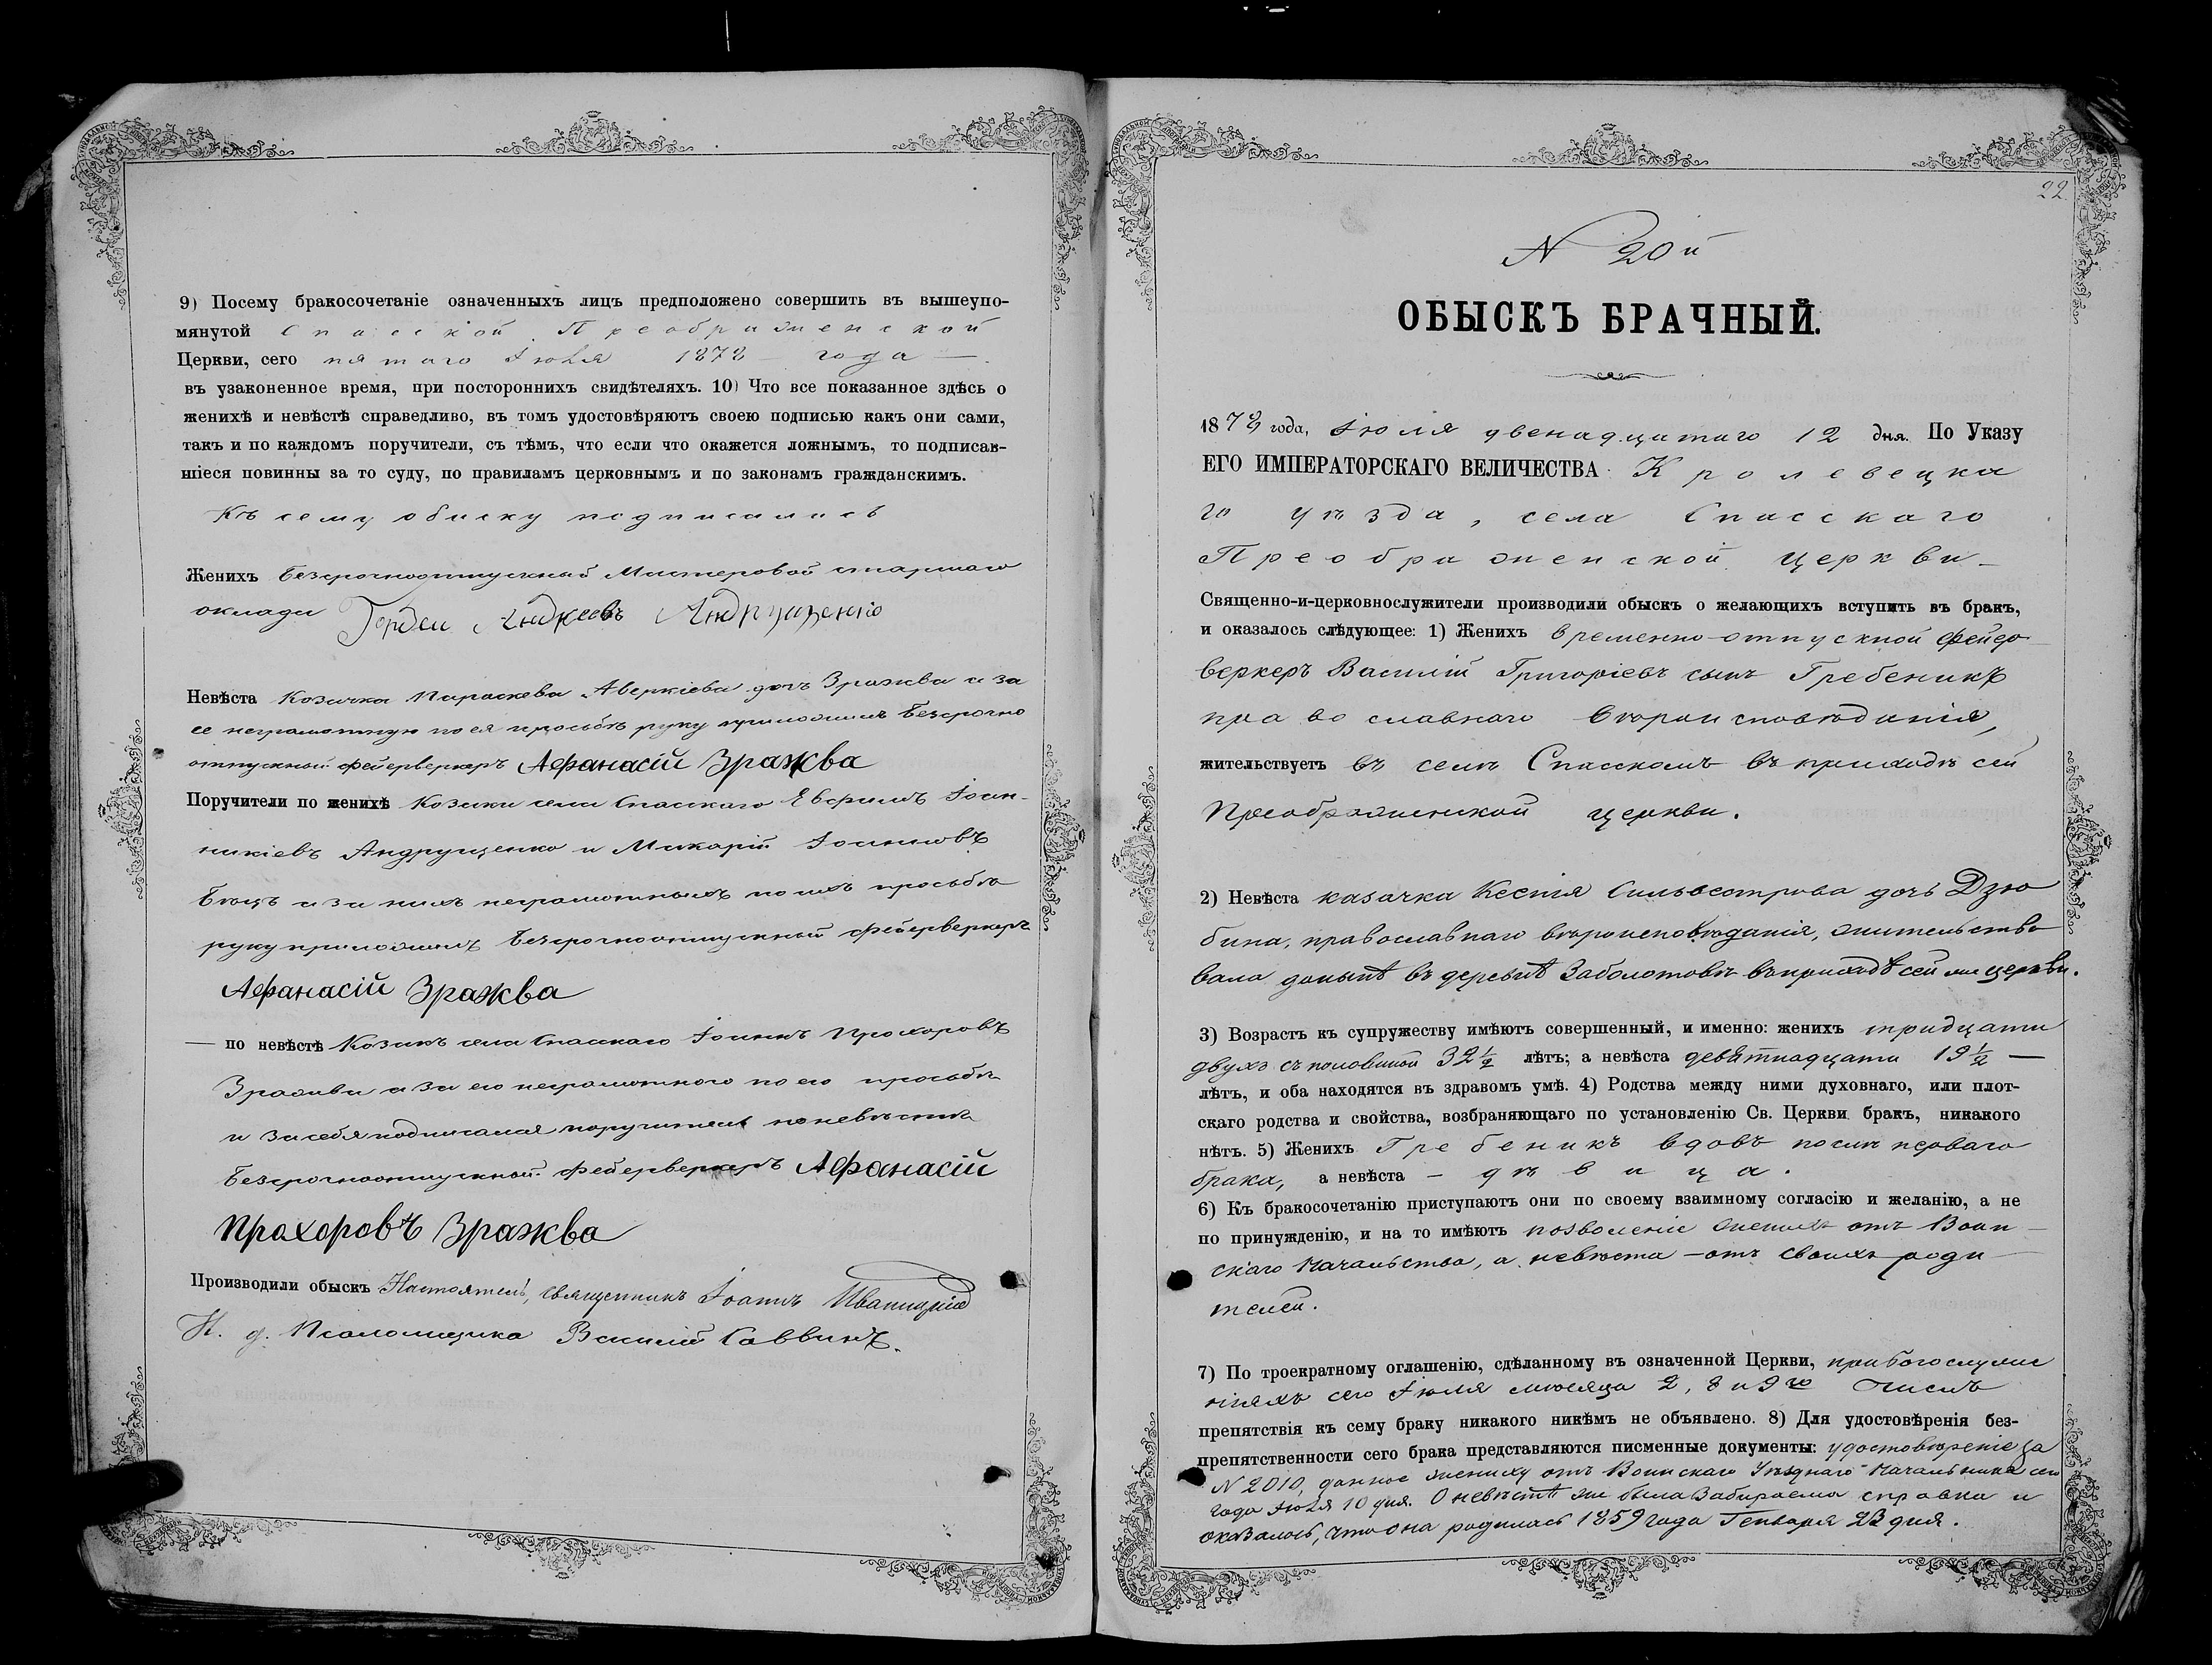 9) Посему бракосочетаніе означенныхъ лицъ предположено совершить въ вышеупо-
мянутой Спасской Преображенской
Церкви, сего пятаго Іюля 1878 года —
въ узаконенное время, при постороннихъ свидѣтеляхъ. 10) Что все показанное здѣсь о
женихѣ и невѣстѣ справедливо, въ томъ удостовѣряютъ своею подписью какъ они сами,
такъ и по каждомъ поручители, съ тѣмъ, что если что окажется ложнымъ, то подписав-
шіеся повинны за то суду, по правиламъ церковнымъ и по законамъ гражданскимъ.
Къ сему обыску подписались
Женихъ Безсрочноотпускный Мастеровой старшаго
оклада Гордей Андреевъ Андрущенко
Невѣста Козачка Параскева Аверкіева дочь Зражва а за
ее неграмотную по ея просьбѣ руку приложилъ Безсрочно
отпускный фейерверкеръ Афанасій Зражва
Поручители по женихѣ Козаки села Спасскаго Евфимъ Іоан-
никіевъ Андрущенко и Макарій Іоанновъ
а за нихъ неграмотныхъ по ихъ просьбѣ
руку приложилъ безсрочноотпускный фейерверкеръ
Афанасій Зражва
— по невѣстѣ Козакъ села Спасскаго Іоаннъ Прохоровъ
Зражва а за его неграмотного по его просьбѣ
и за себя подписался поручитель по невѣстѣ
безсрочноотпускный фейерверкеръ Афанасій
Прохоровъ Зражва
Производили обыскъ Настоятель, священникъ Іоаннъ Иваницкій
И. д. Псаломщика Василій Саввинъ.
22
N 20й
ОБЫСКЪ БРАЧНЫЙ.
1878 года, Іюля двенадцатаго 12 дня. По Указу
ЕГО ИМПЕРАТОРСКАГО ВЕЛИЧЕСТВА Кролевецка
го уѣзда, села Спасскаго
Преображенской церкви —
Священно-и-церковнослужители производили обыскъ о желающихъ вступить въ бракъ,
и оказалось слѣдующее: 1) Женихъ временно-отпускной фейер
веркеръ Василій Григоріевъ сынъ Гребеникъ
православнаго вѣроисповѣданія,
жительствуетъ въ селѣ Спасскомъ въ приходѣ сей
Преображенской церкви.
2) Невѣста казачка Ксенія Сильвестрова дочь Дзю
бина, православнаго вѣроисповѣданія, жительство
вала донынѣ въ деревнѣ Заболотовѣ въ приходѣ сей же церкви.
3) Возрастъ къ супружеству имѣютъ совершенный, и именно: женихъ тридцати
двухъ съ половиной 32½ лѣтъ; а невѣста девятнадцати 19½ —
лѣтъ, и оба находятся въ здравомъ умѣ. 4) Родства между ними духовнаго, или плот-
скаго родства и свойства, возбраняющаго по установленію Св. Церкви бракъ, никакого
нѣтъ. 5) Женихъ Гребеникъ вдовъ послѣ перваго
брака, а невѣста — дѣвица.
6) Къ бракосочетанію приступаютъ они по своему взаимному согласію и желанію, а не
по принужденію, и на то имѣютъ позволеніе женихъ отъ Воин —
скаго Начальства, а невѣста — отъ своихъ роди
телей.
7) По троекратному оглашенію, сдѣланному въ означенной Церкви, при богослуже
ніяхъ сего Іюля мѣсяца 2, 8 и 9го чиселъ
препятствія къ сему браку никакого никѣмъ не объявлено. 8) Для удостовѣренія без-
препятственности сего брака представляются писменные документы: удостовѣреніе за
N 2010, данное жениху отъ Воинскаго Уѣзднаго Начальника сего
года Іюля 10 дня. О невѣстѣ же была забираема справка и
оказалось, что она родилась 1859 года Генваря 23 дня.